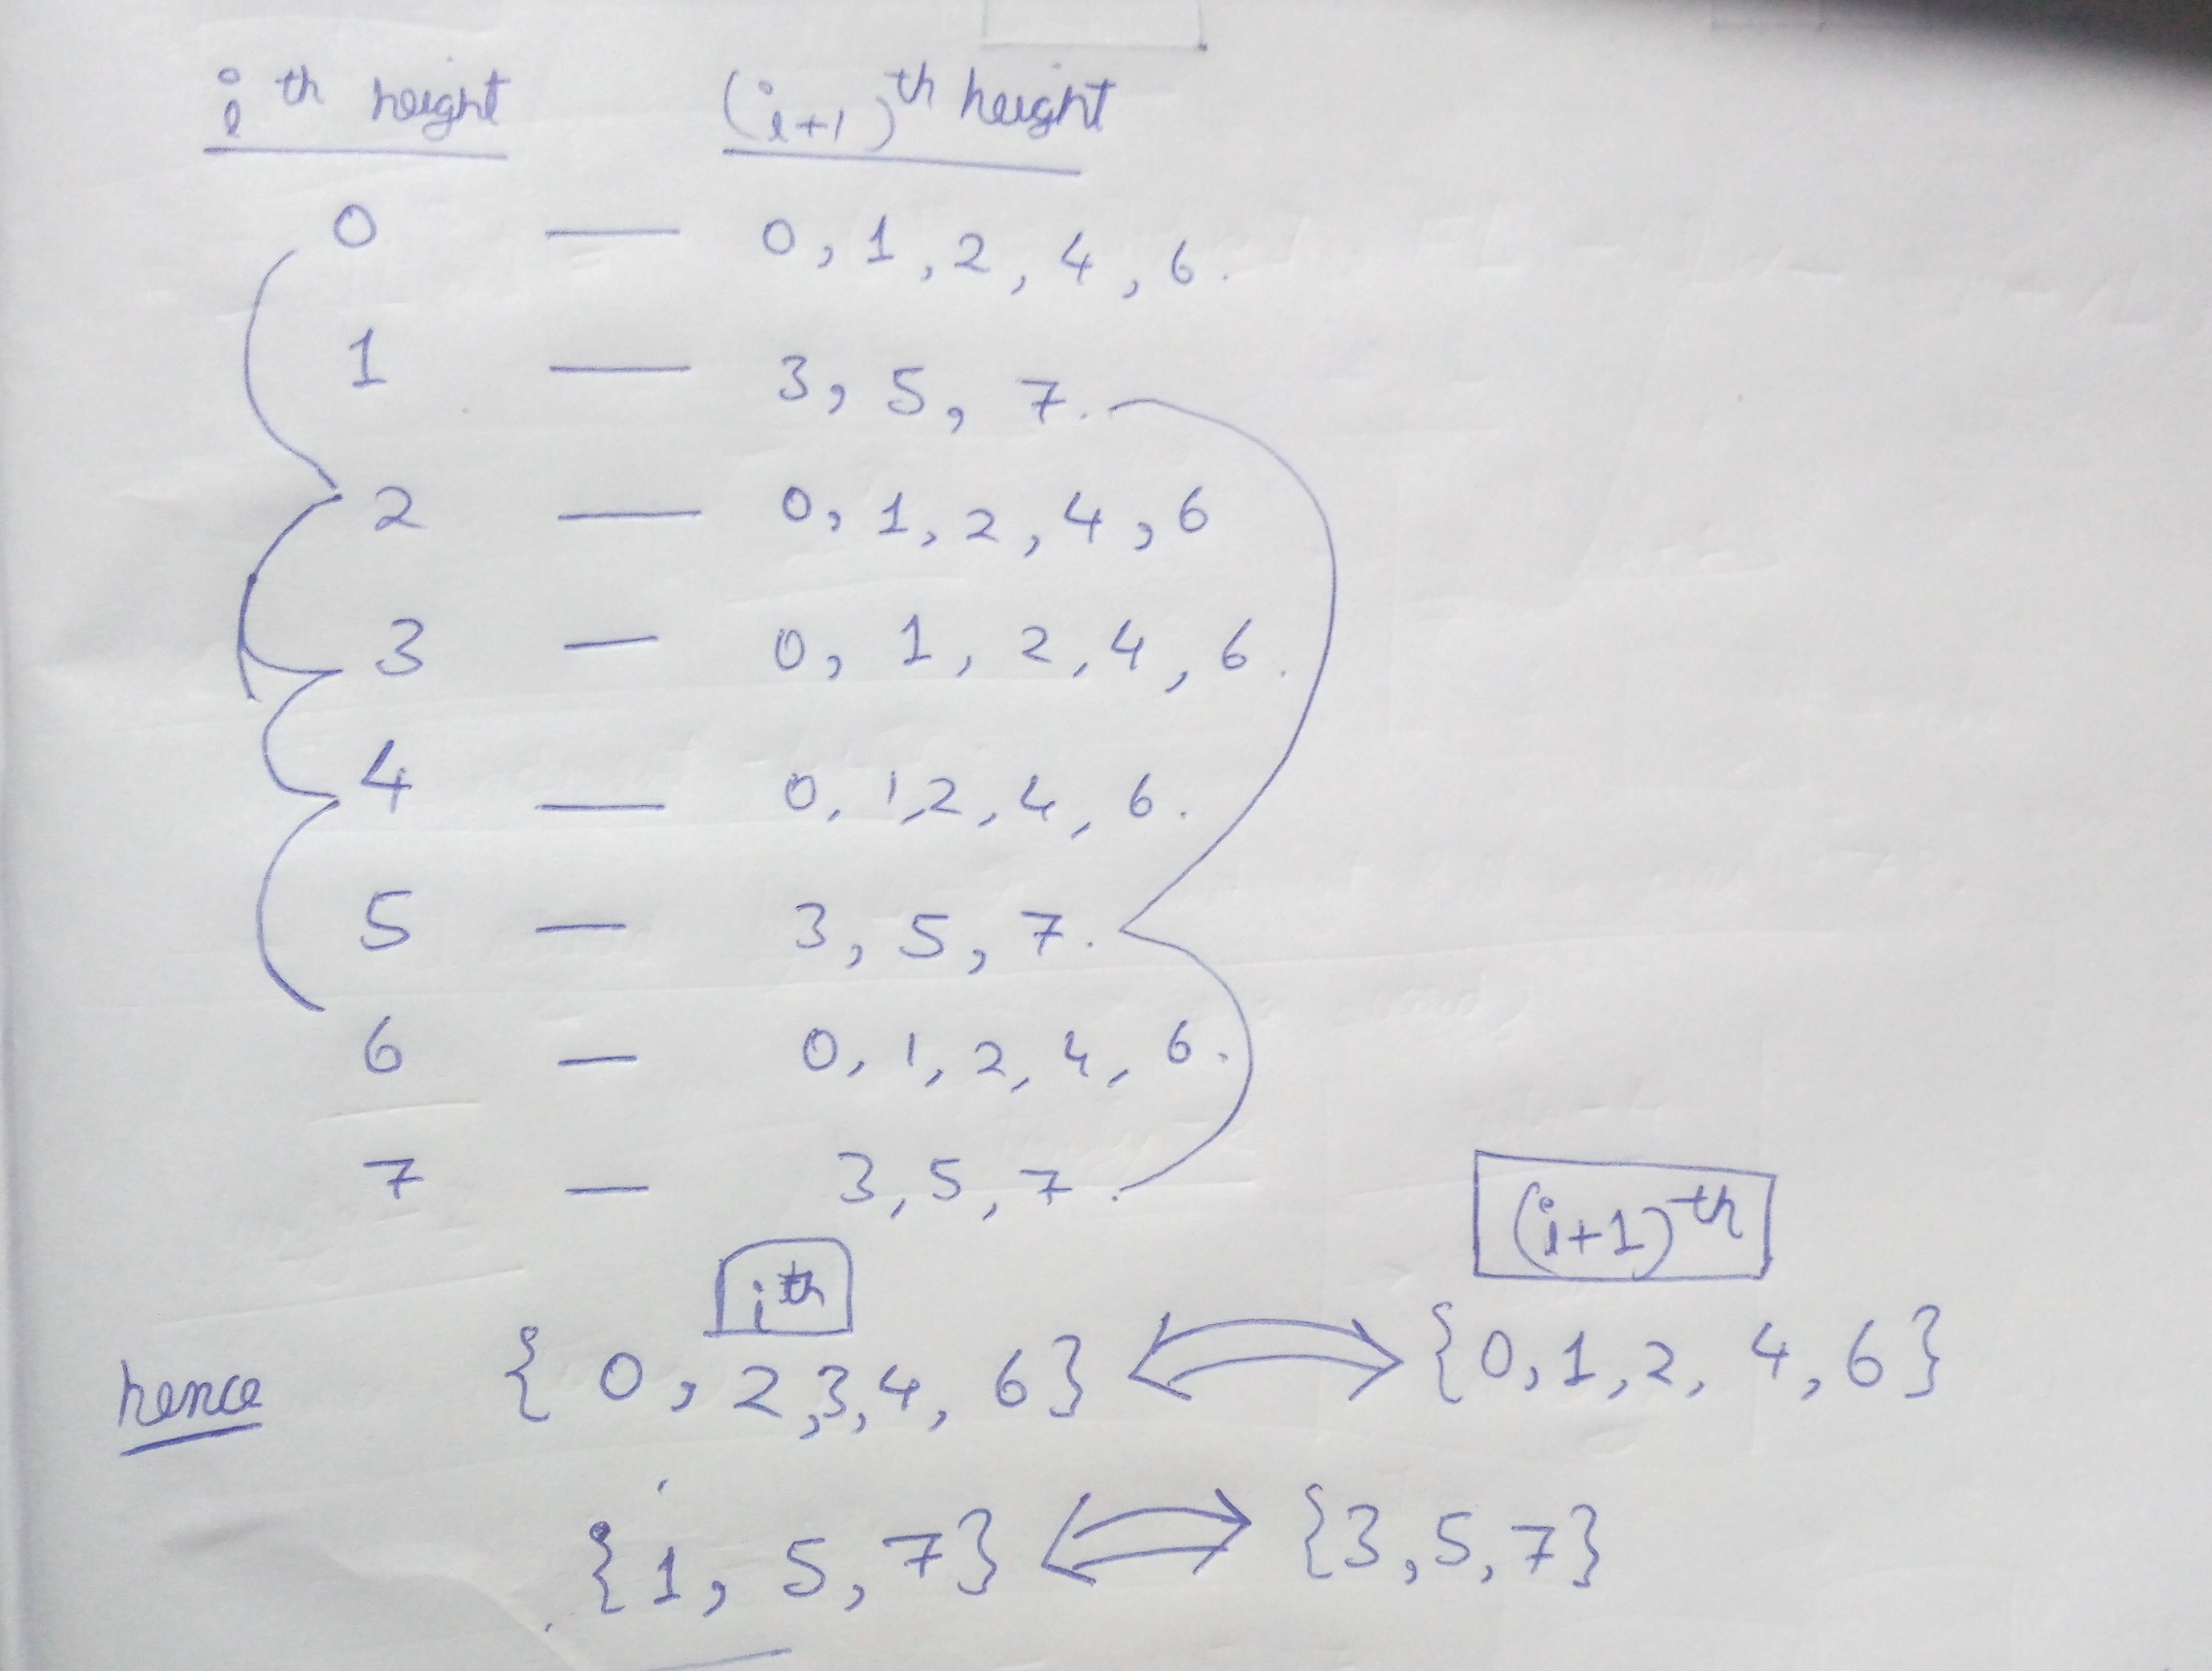 i th height (i+1)th height
0 — 0, 1, 2, 4, 6.
1 — 3, 5, 7.
2 — 0, 1, 2, 4, 6
3 — 0, 1, 2, 4, 6.
4 — 0, 1, 2, 4, 6.
5 — 3, 5, 7.
6 — 0, 1, 2, 4, 6.
7 — 3, 5, 7.
(i+1)th
ith
hence { 0, 2, 3, 4, 6} ⟺ {0, 1, 2, 4, 6}
{1, 5, 7} ⟺ {3, 5, 7}